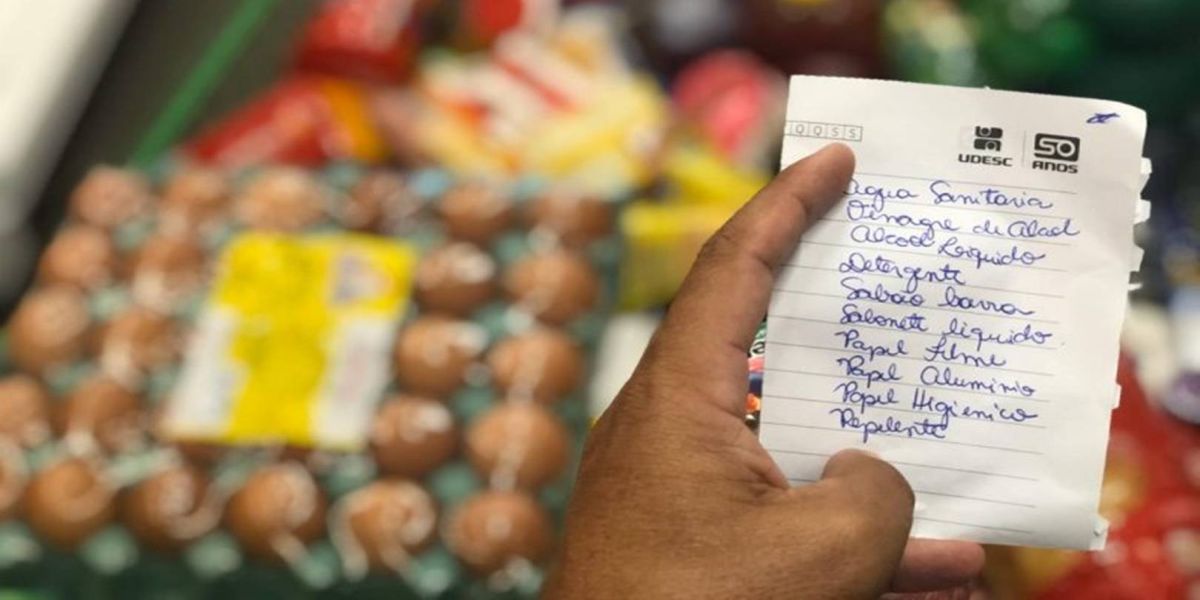 QQSS
UDESC
50
ANOS
Agua Sanitaria
Vinagre de Alcool
Alcool Loiquido
Detergente
Sabão barra
Sabonete líquido
Papel filme
Papel Aluminio
Papel Higienico
Repelente